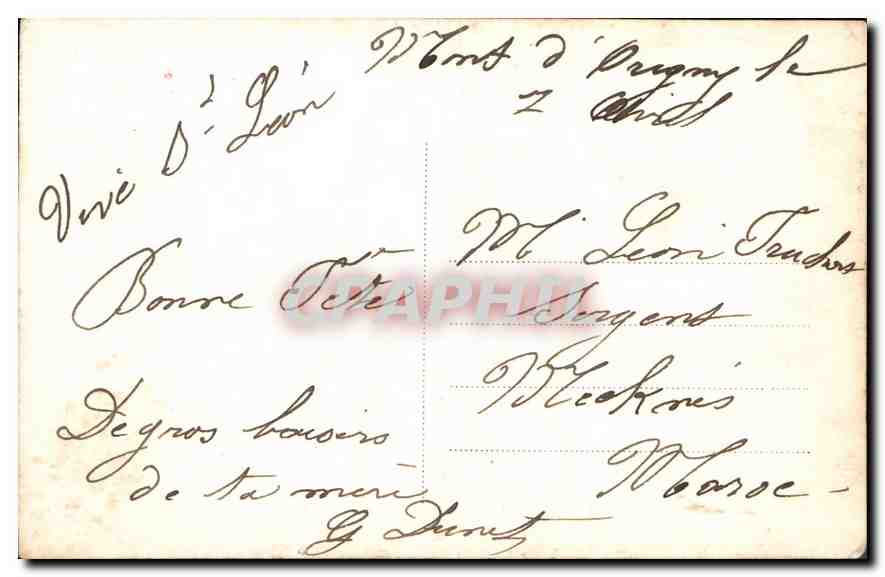 Mont d'Origny le
7 Avril
Vive St Léon
Bonne Fête
De gros baisers
de ta mère
G
Mr Léon
Sergent
Meknès
Maroc
CPAPHIL